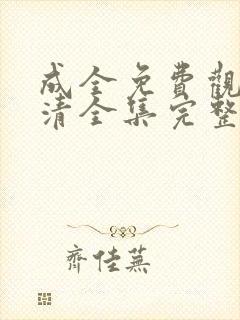 成全免費觀
清全集完整
齊佳蕪